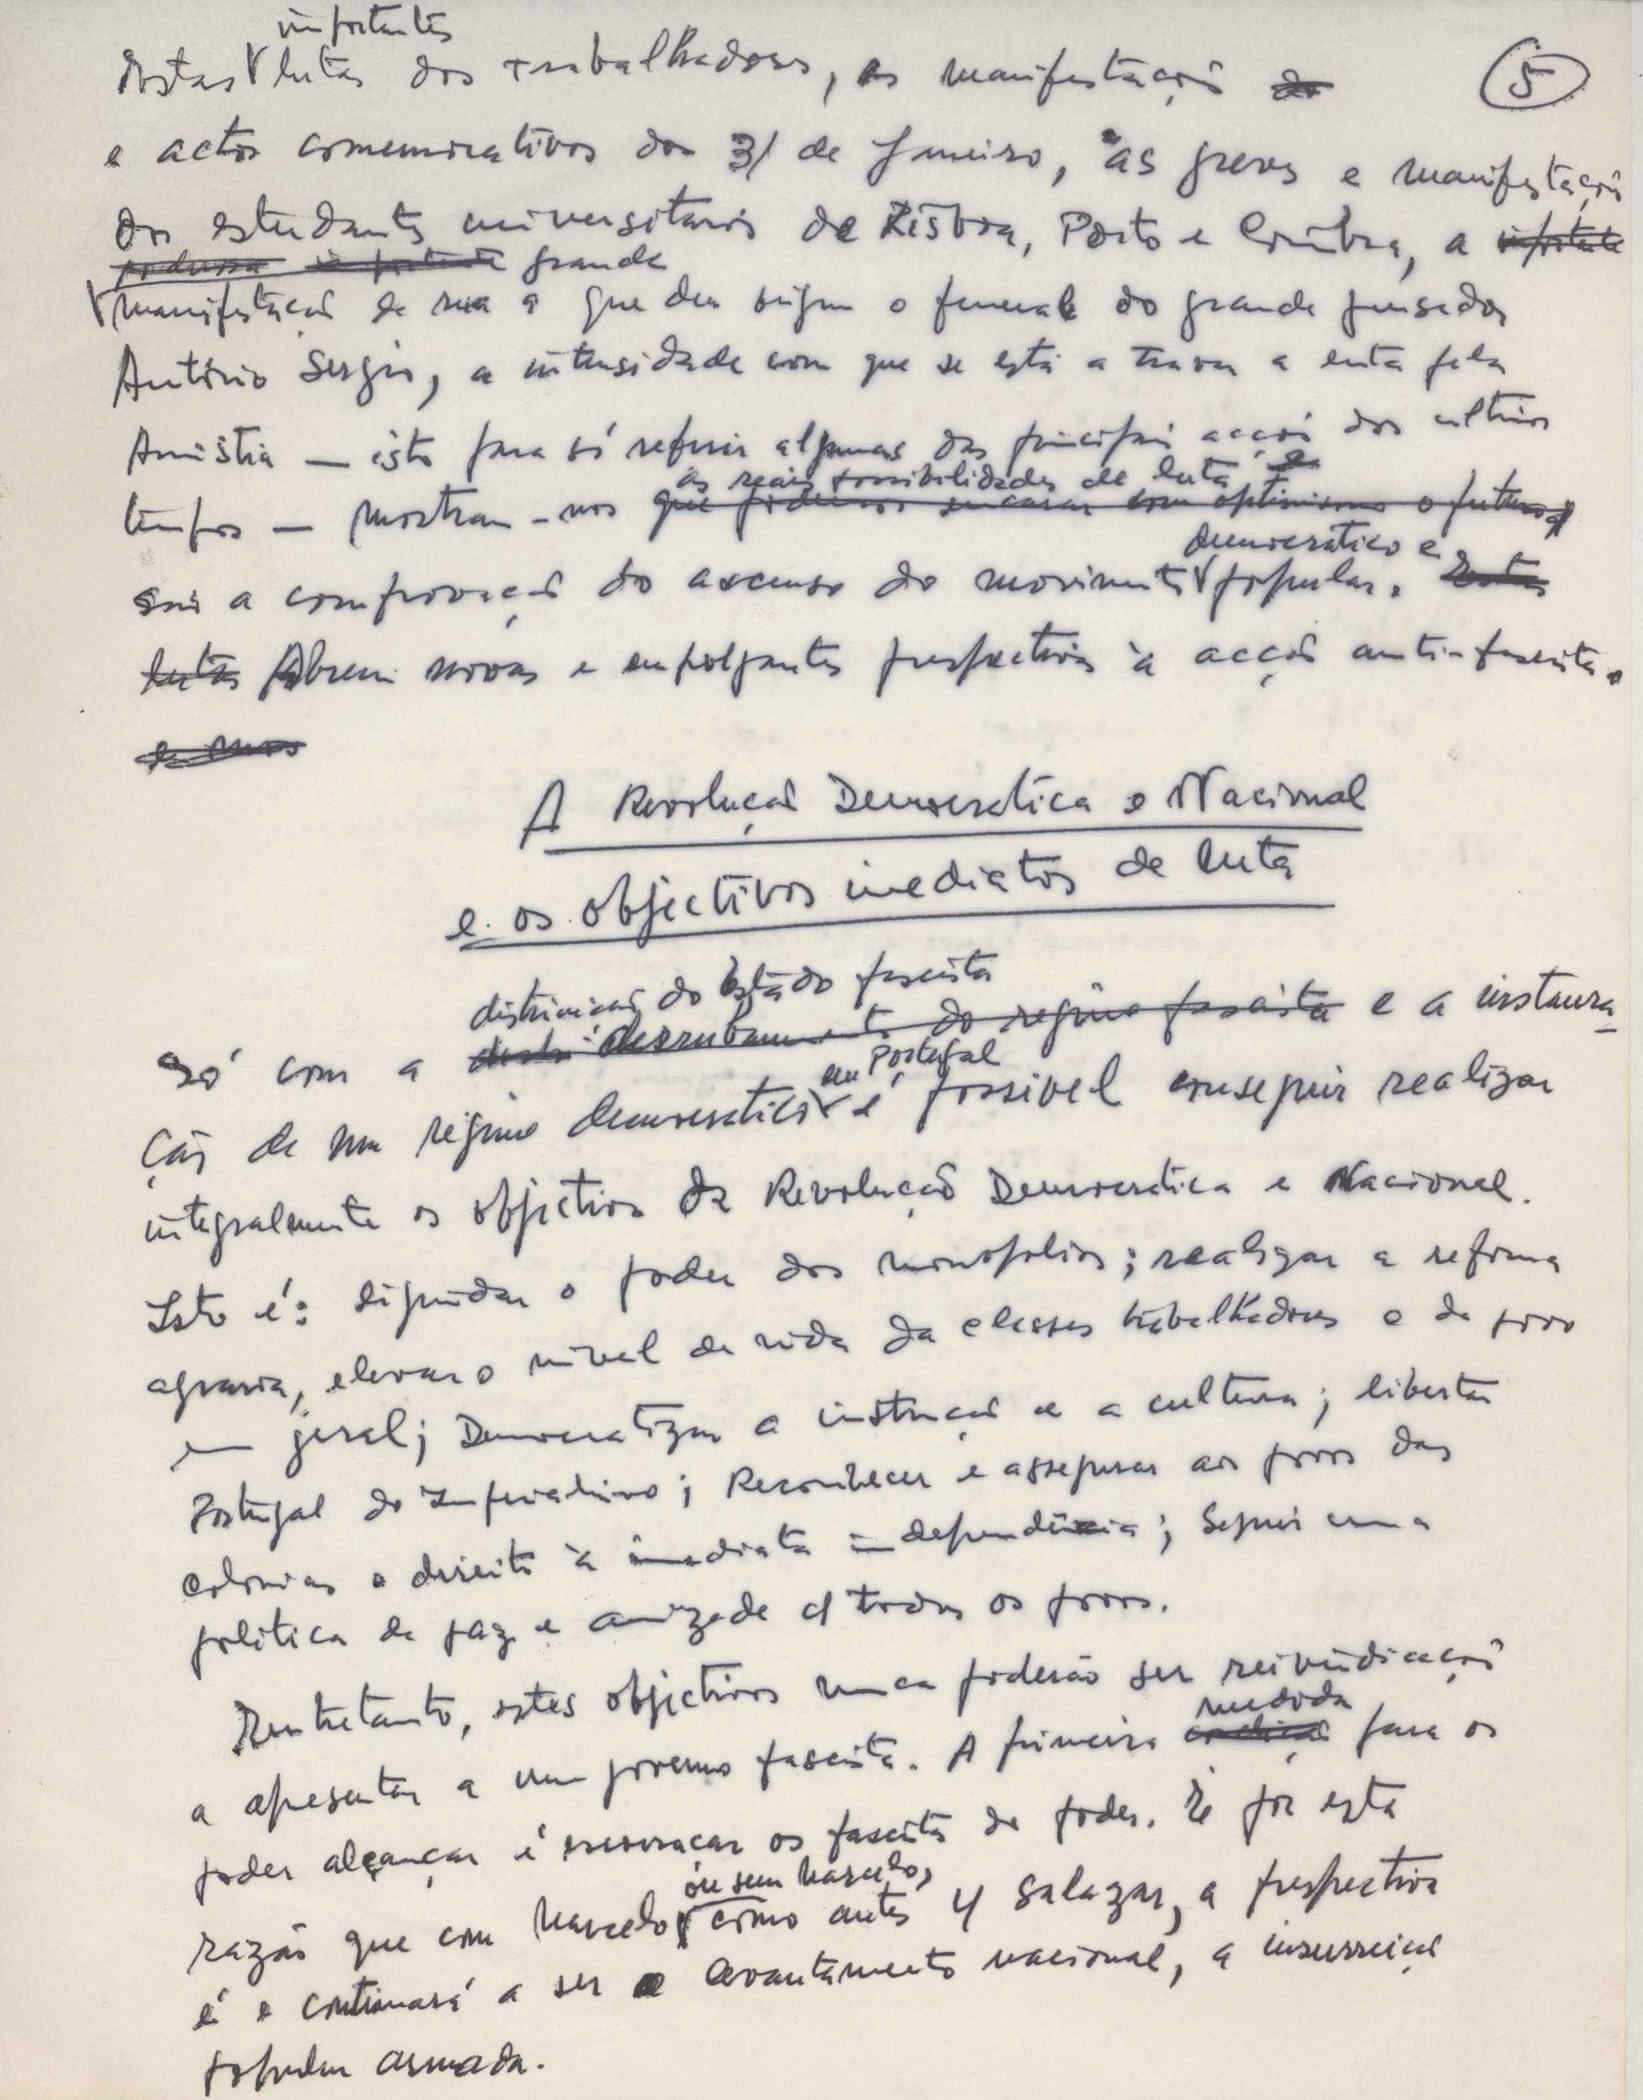 importantes
Estas lutas dos trabalhadores, as manifestações do
5
e actos comemorativos do 31 de Janeiro, as greves e manifestações
dos estudantes universitários de Lisboa, Porto e Coimbra, a importante
poderosa importante grande
manifestação de rua a que deu origem o funeral do grande pensador
António Sérgio, a intensidade com que se está a travar a luta pela
Amnistia — isto para só referir algumas das principais acções dos últimos
as reais possibilidades de luta e
tempos — mostram-nos que podemos encarar com optimismo o futuro
democrático e
são a comprovação do ascenso do movimento popular. Estas
lutas Abrem novas e empolgantes perspectivas à acção anti-fascista.
A Revolução Democrática e Nacional
e os objectivos imediatos de luta
distruição do Estado fascista
Só com a derrubamento do regime fascista e a instaura
em Portugal
ção de um regime democrático é possivel conseguir realizar
integralmente os objectivos da Revolução Democrática e Nacional.
Isto é: liquidar o poder dos monopolios; realizar a reforma
agraria, elevar o nivel de vida da classes trabalhadoras e do povo
em geral; Democratizar a instrução e a cultura; libertar
Portugal do Imperialismo; Reconhecer e assegurar aos povos das
colonias o direito à imediata independência; Seguir uma
politica de paz e amizade c/ todos os povos.
Entretanto, estes objectivos nunca poderão ser reivindicações
medida
a apresentar a um governo fascista. A primeira condição para os
poder alcançar é desalojar os fascistas do poder. É por esta
ou sem Marcelo,
razão que com Marcelo como antes c/ Salazar, a perspectiva
é e continuará a ser o levantamento nacional, a insurreição
popular armada.